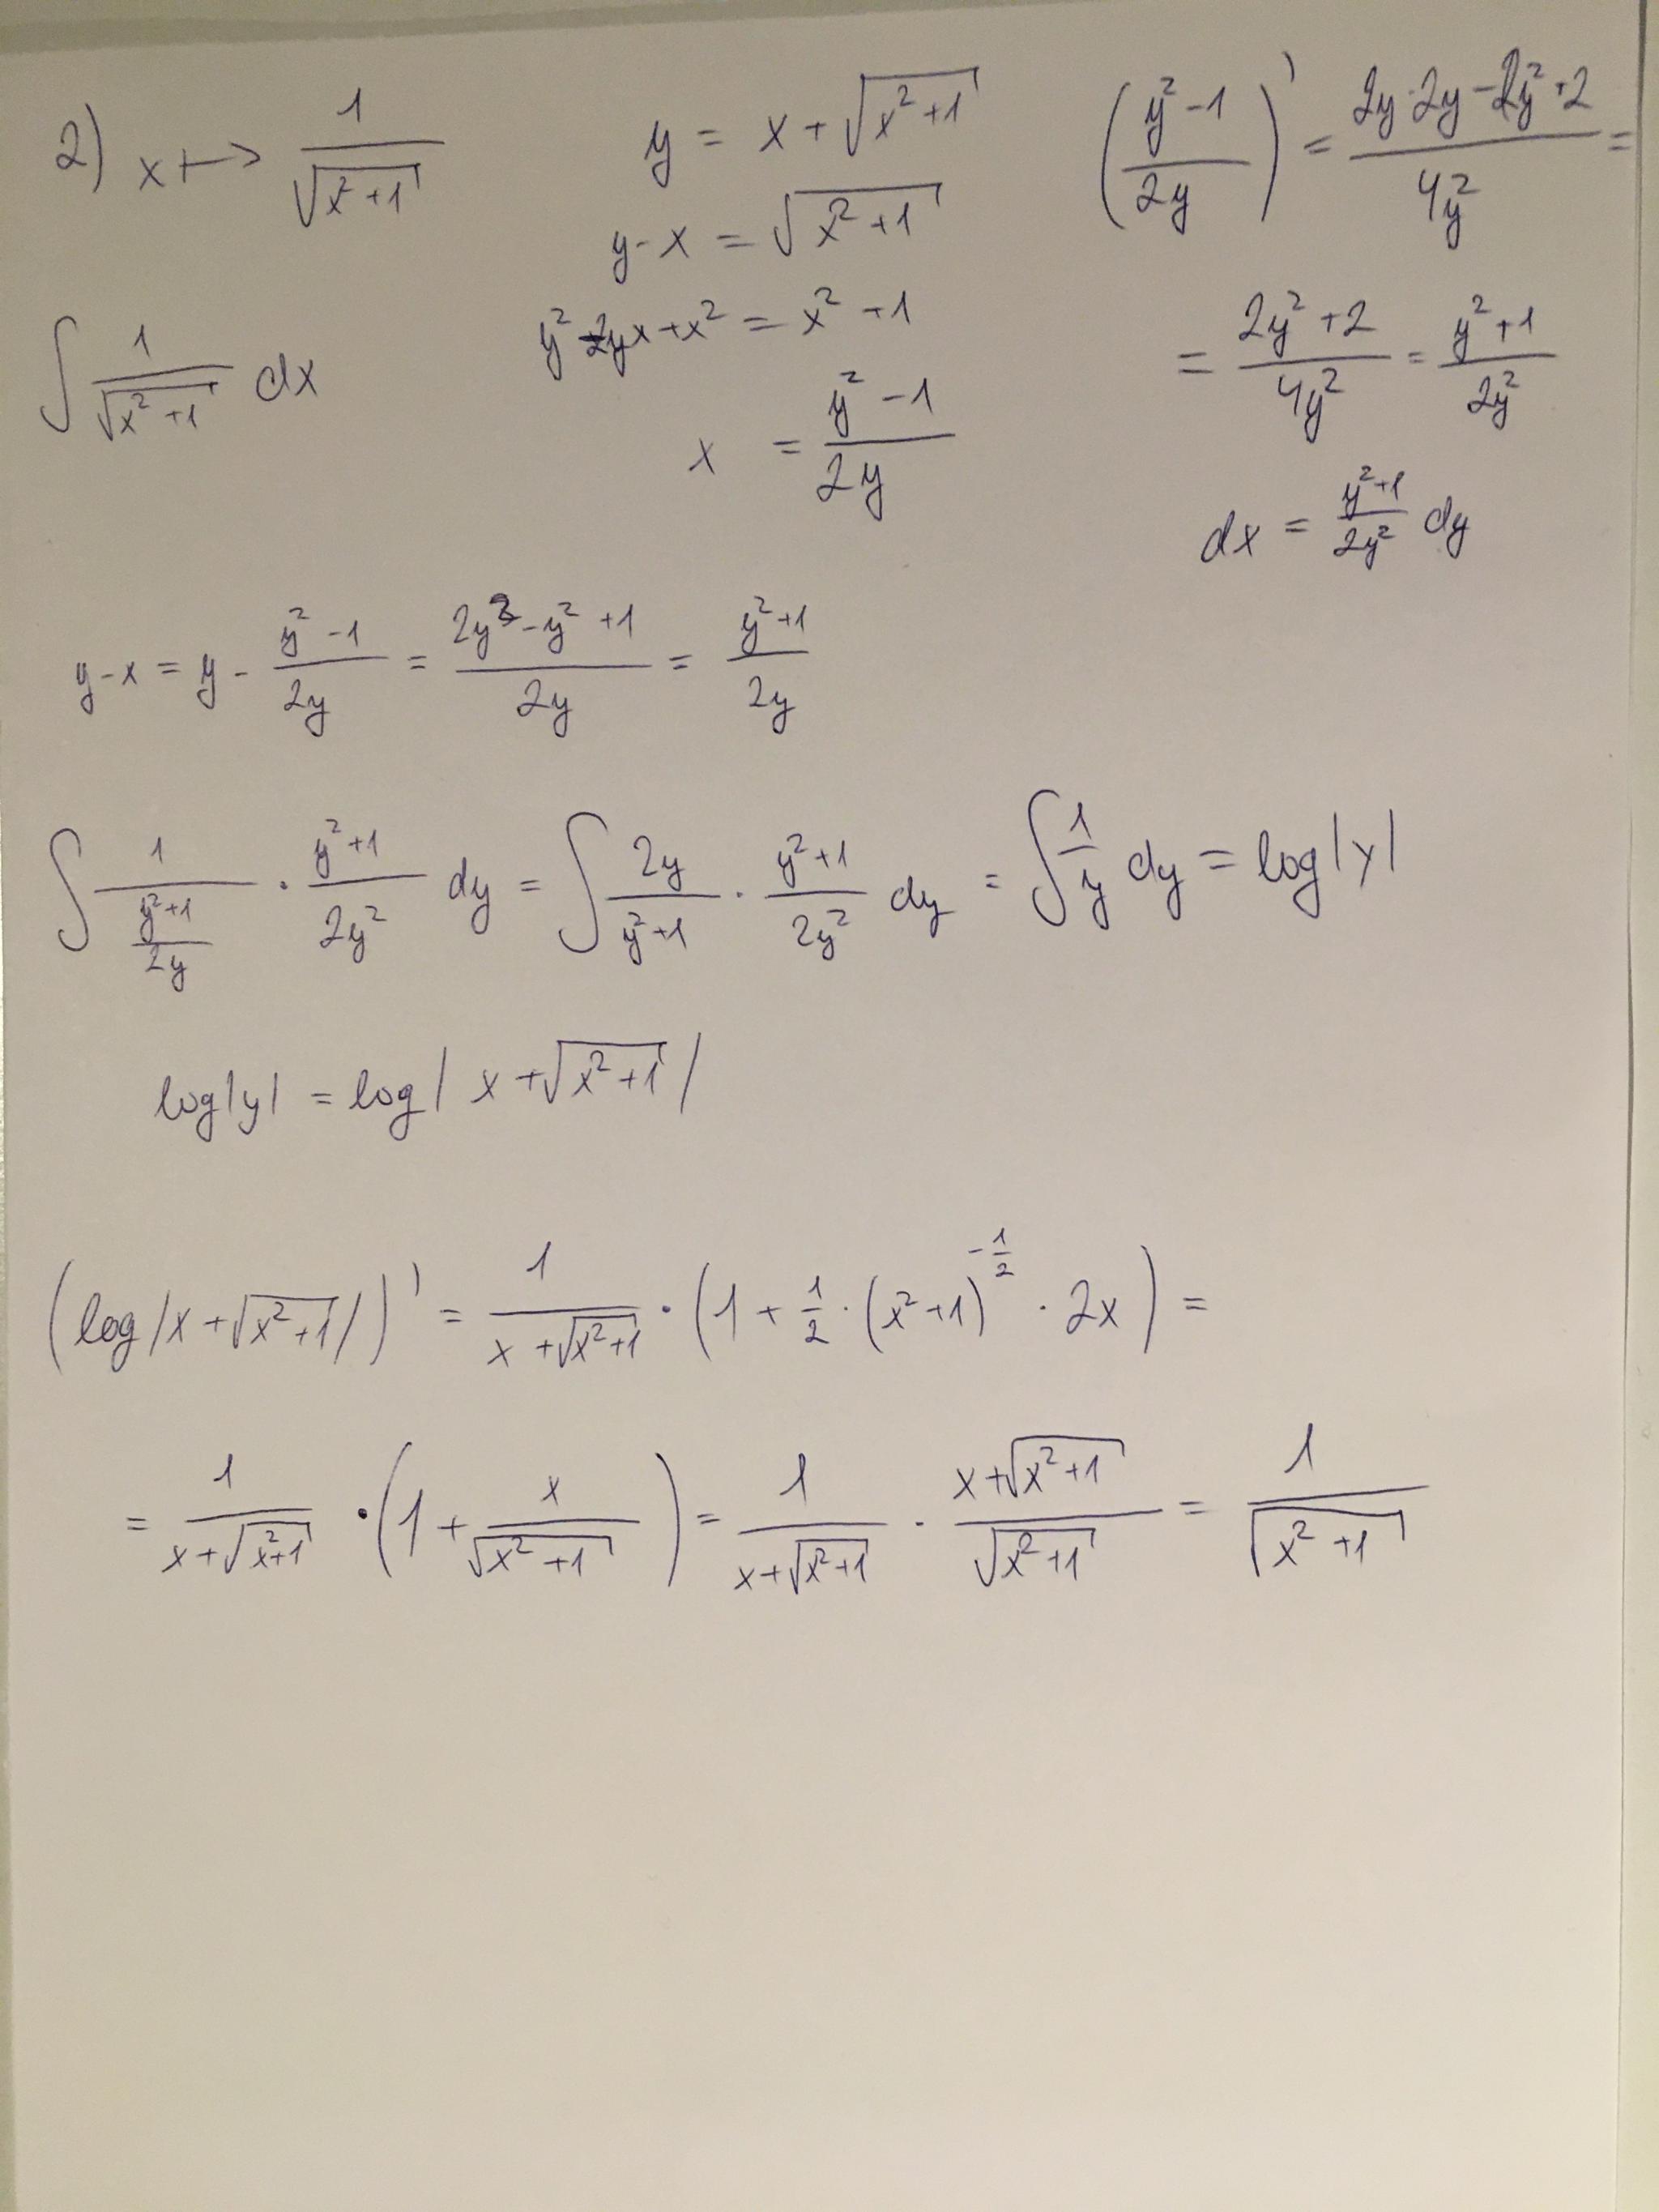 2) x ↦ 1/√(x²+1)
∫ 1/√(x²+1) dx
y = x + √(x²+1)
y - x = √(x²+1)
y² - 2yx + x² = x² + 1
x = (y² - 1)/(2y)
((y² - 1)/(2y))' = (2y·2y - 2y² + 2)/(4y²) =
= (2y² + 2)/(4y²) = (y² + 1)/(2y²)
dx = (y² + 1)/(2y²) dy
y - x = y - (y² - 1)/(2y) = (2y² - y² + 1)/(2y) = (y² + 1)/(2y)
∫ 1/((y² + 1)/(2y)) · (y² + 1)/(2y²) dy = ∫ (2y)/(y² + 1) · (y² + 1)/(2y²) dy = ∫ 1/y dy = log|y|
log|y| = log|x + √(x²+1)|
(log|x + √(x²+1)|)' = 1/(x + √(x²+1)) · (1 + 1/2 · (x²+1)^(-1/2) · 2x) =
= 1/(x + √(x²+1)) · (1 + x/√(x²+1)) = 1/(x + √(x²+1)) · (x + √(x²+1))/√(x²+1) = 1/√(x²+1)